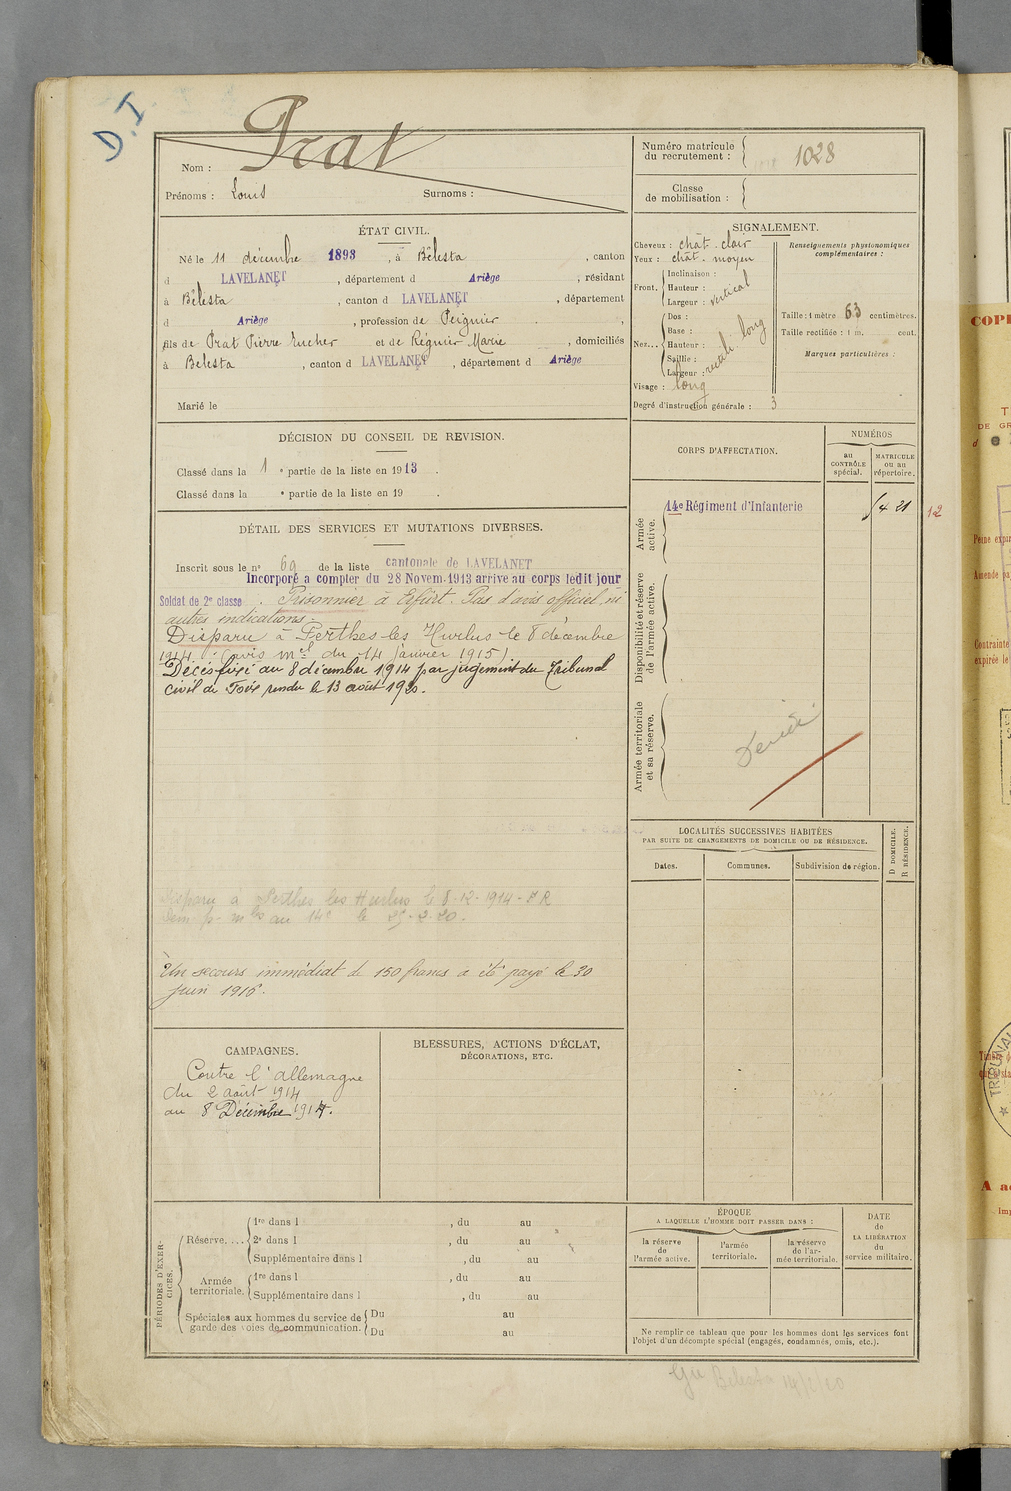 D.I
Nom : Prat
Prénoms : Louis Surnoms :
Numéro matricule
du recrutement : 1028
Classe
de mobilisation :
ÉTAT CIVIL.
Né le 11 décembre 1893, à Bélesta, canton
d LAVELANET, département d Ariège, résidant
à Bélesta, canton d LAVELANET, département
d Ariège, profession de Peignier,
fils de Prat Pierre Eucher et de Régnier Marie, domiciliés
à Bélesta, canton d LAVELANET, département d Ariège
Marié le
SIGNALEMENT.
Cheveux : chât. clair
Yeux : chât. moyen
Front. Inclinaison :
Hauteur :
Largeur : vertical
Nez... Dos :
Base :
Hauteur :
Saillie :
Largeur : rectil. long
Visage : long
Degré d'instruction générale : 3
Renseignements physionomiques
complémentaires :
Taille : 1 mètre 63 centimètres.
Taille rectifiée : 1 m. cent.
Marques particulières :
DÉCISION DU CONSEIL DE REVISION.
Classé dans la 1 e partie de la liste en 1913.
Classé dans la e partie de la liste en 19 .
DÉTAIL DES SERVICES ET MUTATIONS DIVERSES.
Inscrit sous le n° 69 de la liste cantonale de LAVELANET
Incorporé a compter du 28 Novem. 1913 arrive au corps ledit jour
Soldat de 2e classe. Prisonnier à Erfurt. Pas d'avis officiel, ni
autres indications.
Disparu à Perthes-les-Hurlus le 8 décembre
1914. (avis mel du 14 janvier 1915)
Décès fixé au 8 décembre 1914 par jugement du Tribunal
civil de Foix rendu le 13 août 1920.
Disparu à Perthes les Hurlus le 8-12-1914 -
au 14e le 25-2-20.
Un secours immédiat de 150 francs a été payé le 30
juin 1916.
CORPS D'AFFECTATION.
NUMÉROS
au
CONTRÔLE
spécial.
MATRICULE
ou au
répertoire.
Armée
active.
14e Régiment d'Infanterie
4 21
12
Disponibilité et réserve
de l'armée active.
Armée territoriale
et sa réserve.
LOCALITÉS SUCCESSIVES HABITÉES
PAR SUITE DE CHANGEMENTS DE DOMICILE OU DE RÉSIDENCE.
Dates. Communes. Subdivision de région.
D DOMICILE.
R RÉSIDENCE.
CAMPAGNES.
Contre l'allemagne
du 2 août 1914
au 8 Décembre 1914.
BLESSURES, ACTIONS D'ÉCLAT,
DÉCORATIONS, ETC.
PÉRIODES D'EXER-
CICES.
Réserve.... 1re dans l , du au
2e dans l , du au
Supplémentaire dans l , du au
Armée
territoriale. 1re dans l , du au
Supplémentaire dans l , du au
Spéciales aux hommes du service de
garde des voies de communication. Du au
Du au
ÉPOQUE
A LAQUELLE L'HOMME DOIT PASSER DANS :
la réserve
de
l'armée active.
l'armée
territoriale.
la réserve
de l'ar-
mée territoriale.
DATE
de
LA LIBÉRATION
du
service militaire.
Ne remplir ce tableau que pour les hommes dont les services font
l'objet d'un décompte spécial (engagés, condamnés, omis, etc.).
Bélesta